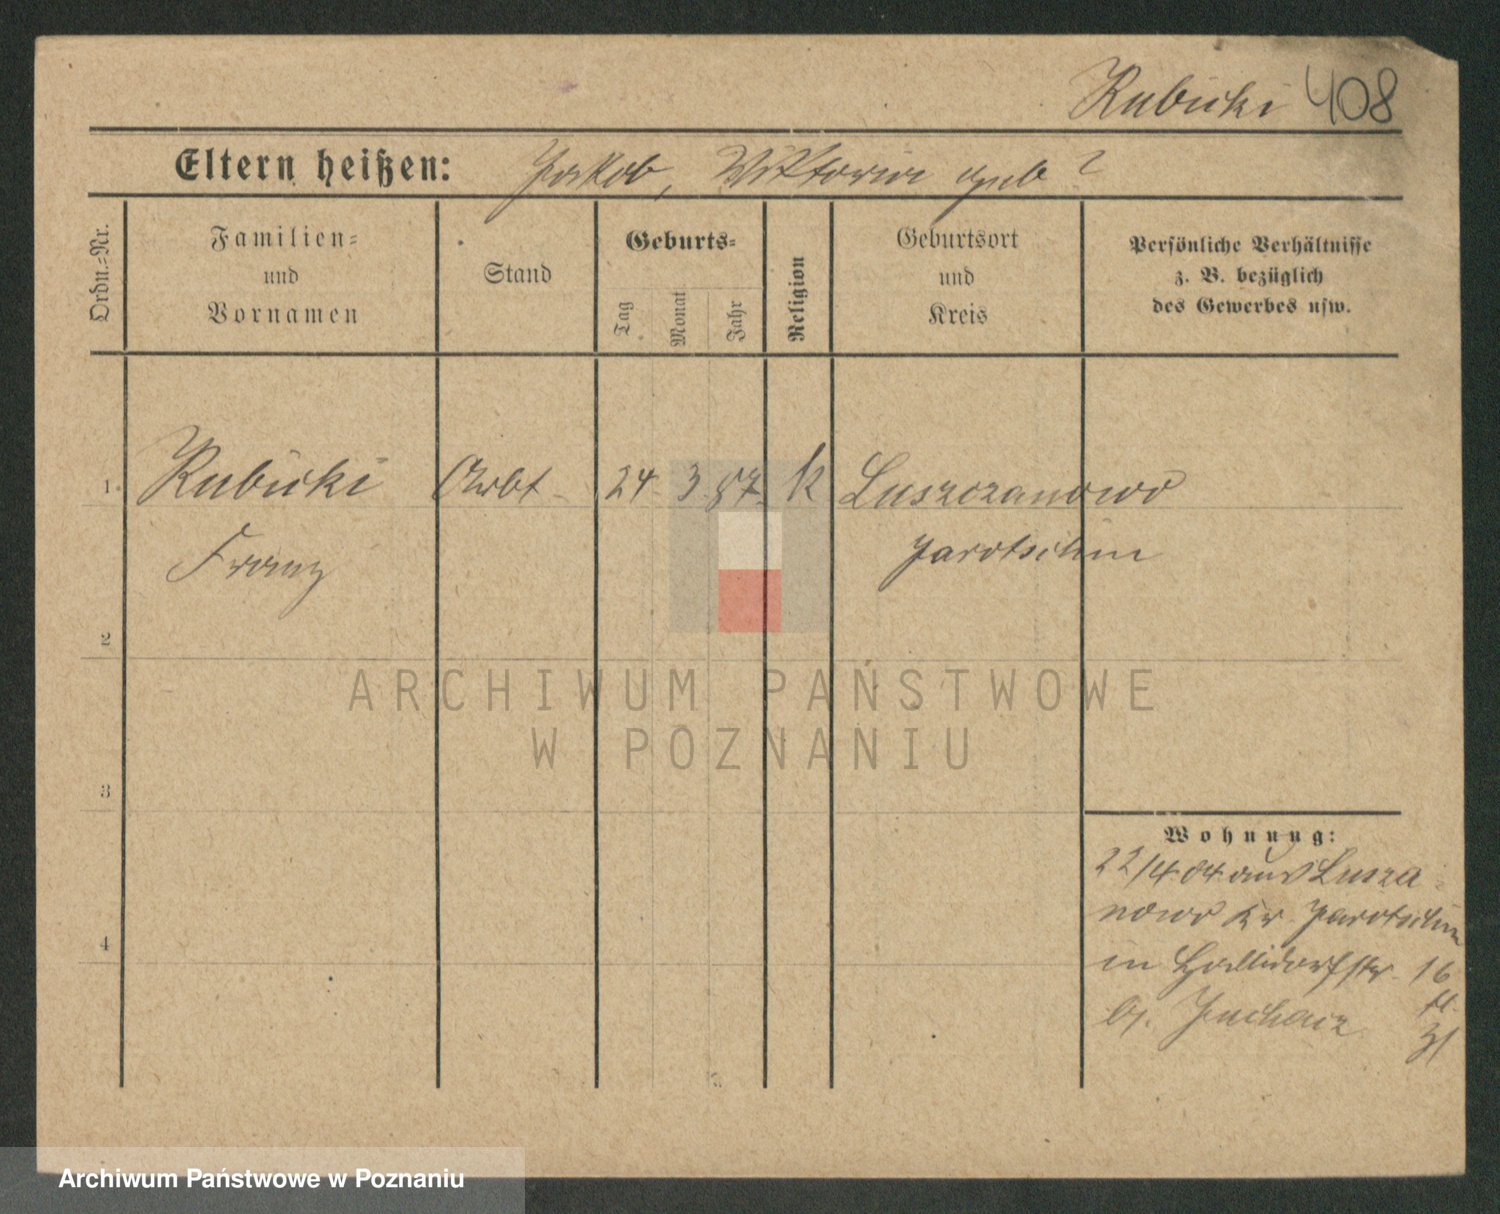 Rubicki 408
Eltern heißen: Jakob, Wiktoria geb ?
Ordn.=Nr.
Familien=
und
Vornamen
Stand
Geburts=
Tag
Monat
Jahr
Religion
Geburtsort
und
Kreis
Persönliche Verhältnisse
z. B. bezüglich
des Gewerbes usw.
1. Rubicki Arbt 24. 3. 87. k Luszczanowo
Franz Jarotschin
2
3
4
Wohnung:
22/4. 04 aus Lusza-
nowo Kr. Jarotschin
in 16
b/.
ARCHIWUM PAŃSTWOWE
W POZNANIU
Archiwum Państwowe w Poznaniu